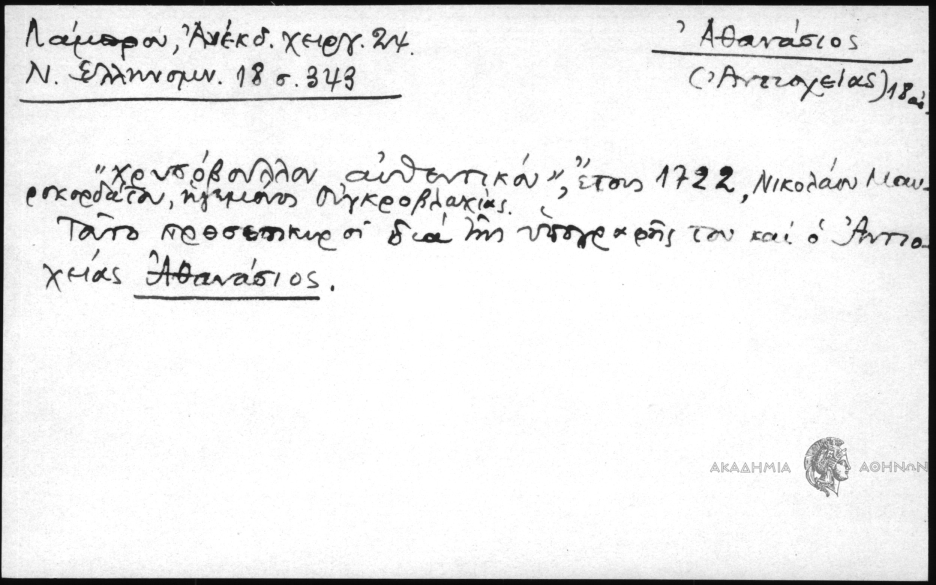 Λάμπρου, Ἀνέκδ. χειργ. 24.
Ν. Ἑλληνομν. 18 σ. 343
Ἀθανάσιος
(Ἀντιοχείας) 18 αἰ.
"χρυσόβουλλον αὐθεντικόν", ἔτους 1722, Νικολάου Μαυ-
ροκορδάτου, ἡγεμόνος Οὑγκροβλαχίας.
Τοῦτο προσεπικυροῖ διά τῆς ὑπογραφῆς του καί ὁ Ἀντιο-
χείας Ἀθανάσιος.
ΑΚΑΔΗΜΙΑ ΑΘΗΝΩΝ